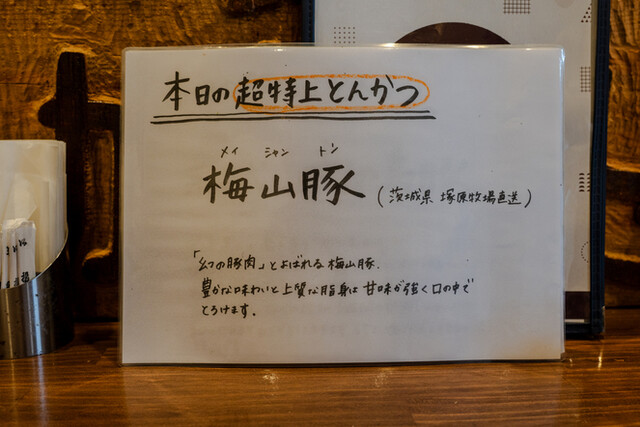 本日の超特上とんかつ
メイ シャン トン
梅山豚 (茨城県 塚原牧場直送)
「幻の豚肉」とよばれる梅山豚.
豊かな味わいと上質な脂身は甘味が強く口の中で
とろけます。